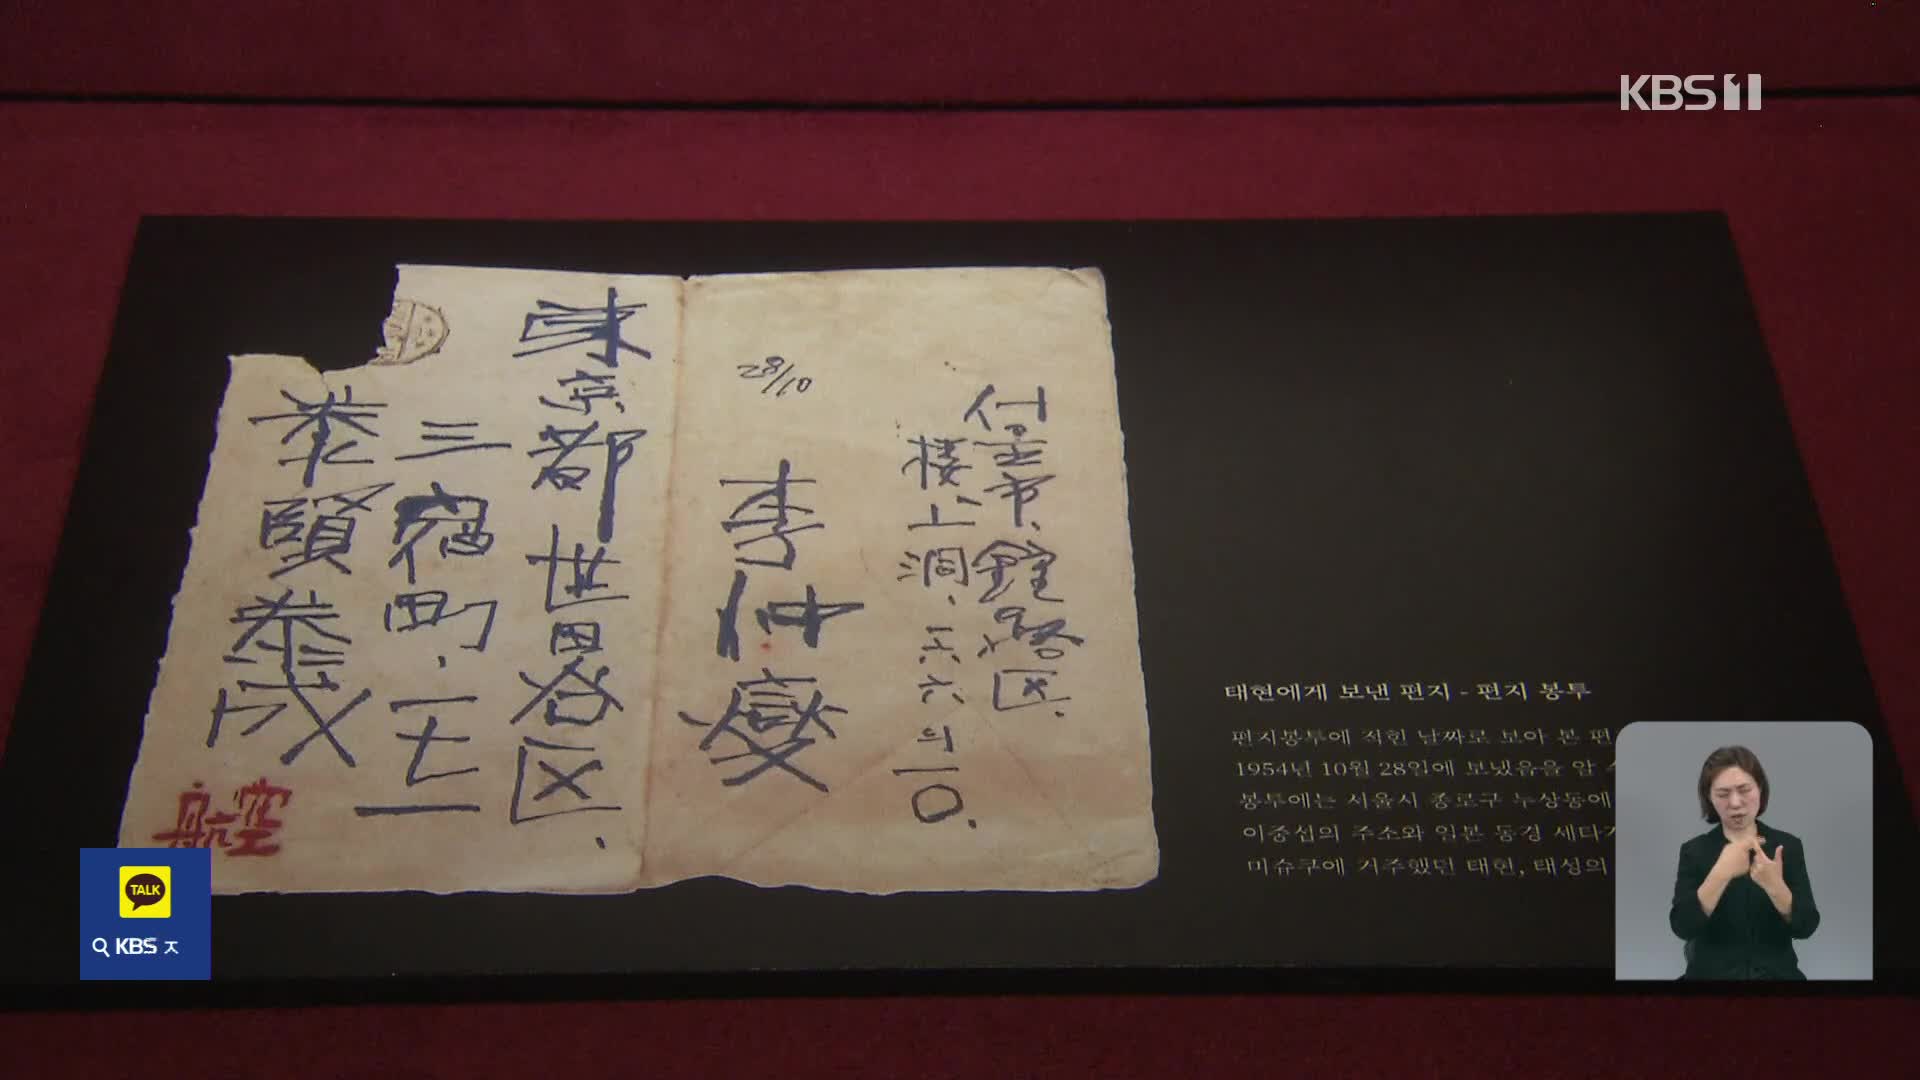 KBS 1
서울市、鐘路区.
樓上洞、一六六의一〇.
28/10
李仲燮
東京都世田谷区、
三宿町、一七一
泰賢 泰成
航空
태현에게 보낸 편지 - 편지 봉투
편지봉투에 적힌 날짜로 보아 본 편
1954년 10월 28일에 보냈음을 알
봉투에는 서울시 종로구 누상동에
이중섭의 주소와 일본 동경 세다가
미슈쿠에 거주했던 태현, 태성의
TALK
KBS ㅈ